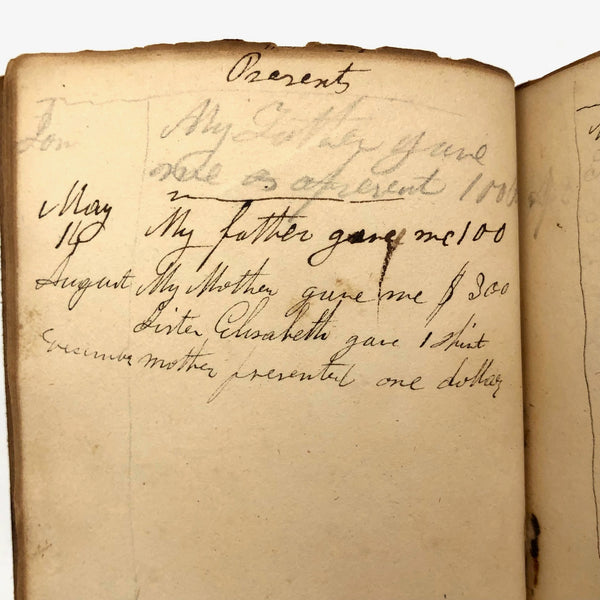 Presents
My Father gave
me as a present 100
May
16 My father gave me 100
August My Mother gave me $ 300
Sister Elisabeth gave 1 shirt
December mother presented one dollar